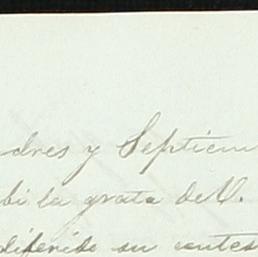 dres y Septiem
bi la grata de V.
diferido su contes